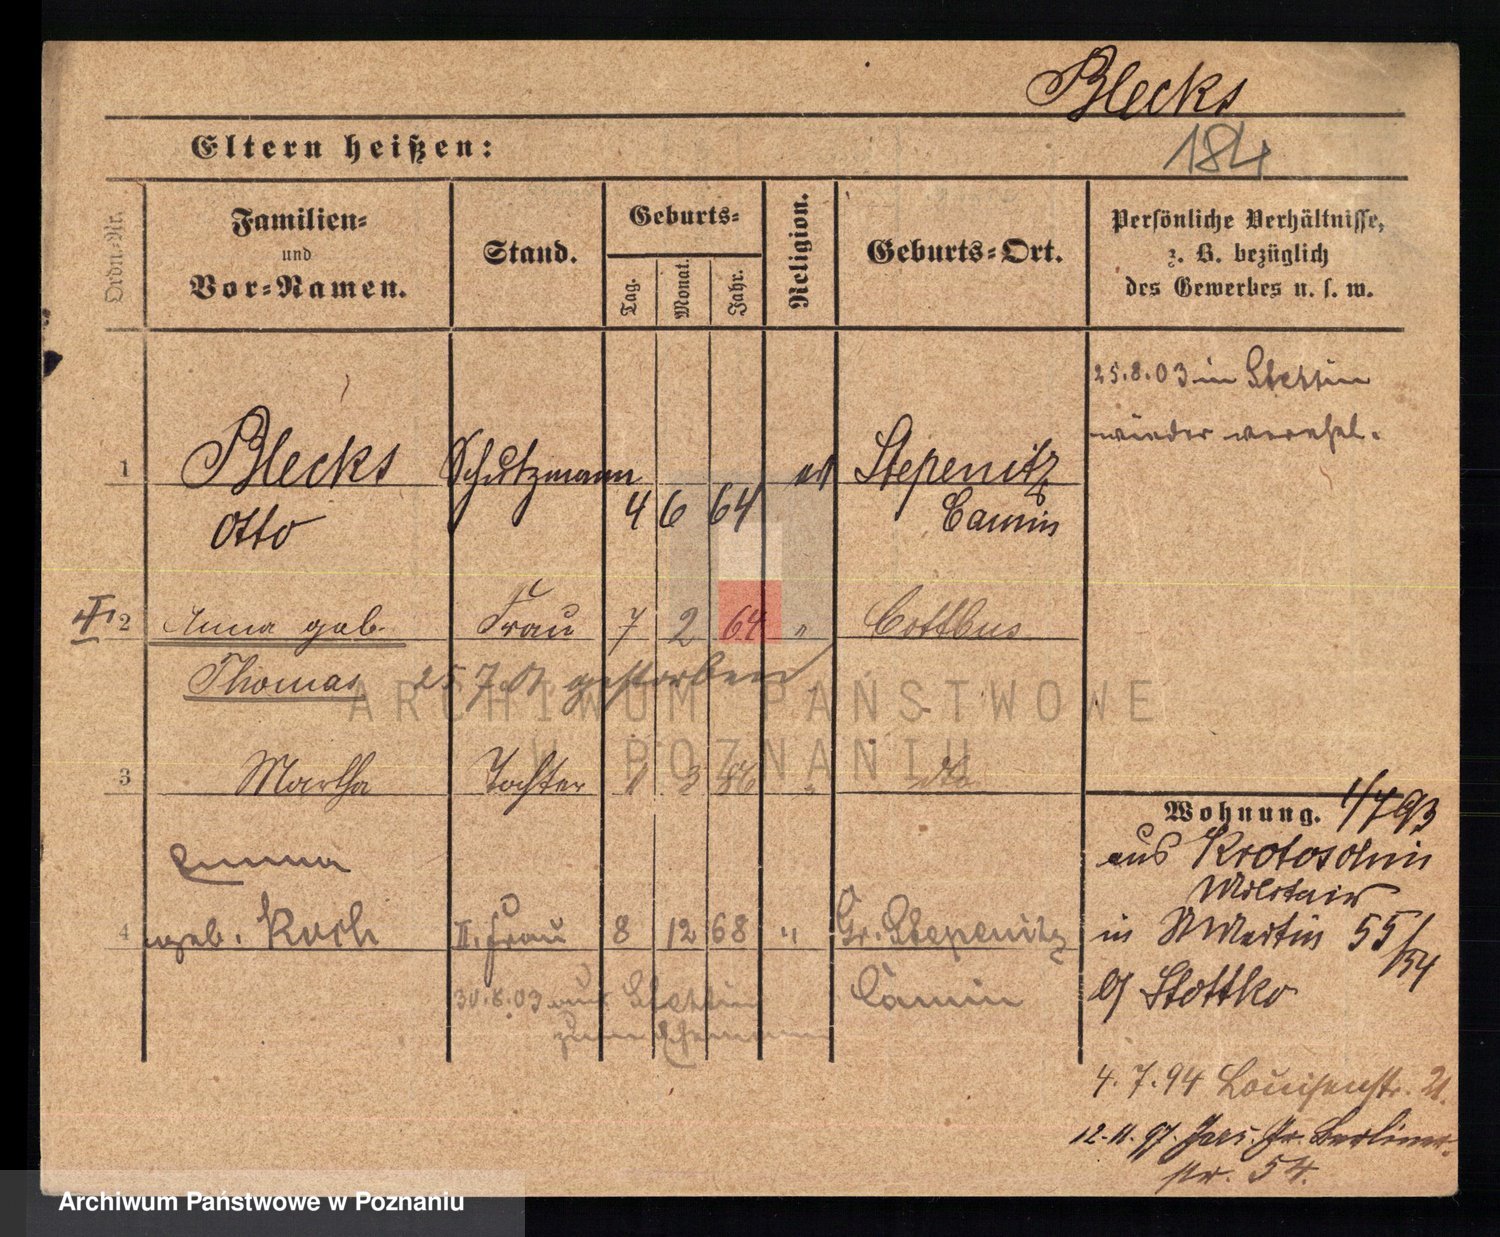 Blecks
184
Eltern heißen:
Ordn.-Nr.
Familien-
und
Vor-Namen.
Stand.
Geburts-
Tag.
Monat.
Jahr.
Religion.
Geburts-Ort.
Persönliche Verhältnisse,
z. B. bezüglich
des Gewerbes u. s. w.
25.8.03 in Stettin
wieder verehel.
1 Blecks Schutzmann Stepenitz
Otto 4 6 64 Camin
II 2 Anna geb. Frau 7 2 64 " Cottbus
Thomas 25 7 01. gestorben
3 Martha Tochter 1 3 86 " do
Wohnung. 1/7 93
aus Krotoschin
Militair
in St Martin 55/54
bei Stottko
Emma
4 geb. Koch II. Frau 8 12 68 " Gr. Stepenitz
30.8.03 aus Stettin Camin
zum Ehemann
4.7.94 Louisenstr. 21.
12.11.97. Berliner-
str. 54.
ARCHIWUM PAŃSTWOWE
W POZNANIU
Archiwum Państwowe w Poznaniu